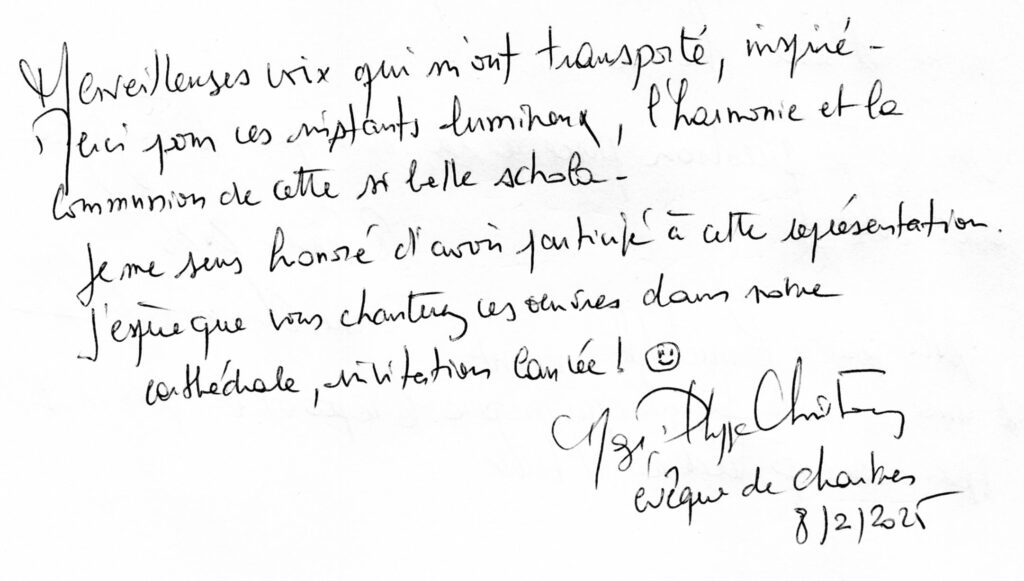 Merveilleuses voix qui m'ont transporté, inspiré -
Merci pour ces instants lumineux, l'harmonie et la
Communion de cette si belle schola -
Je me sens honoré d'avoir participé à cette représentation.
J'espère que vous chanterez ces œuvres dans notre
cathédrale, invitation lancée ! ☺
Mgr Philippe Christory
évêque de Chartres
8/2/2025